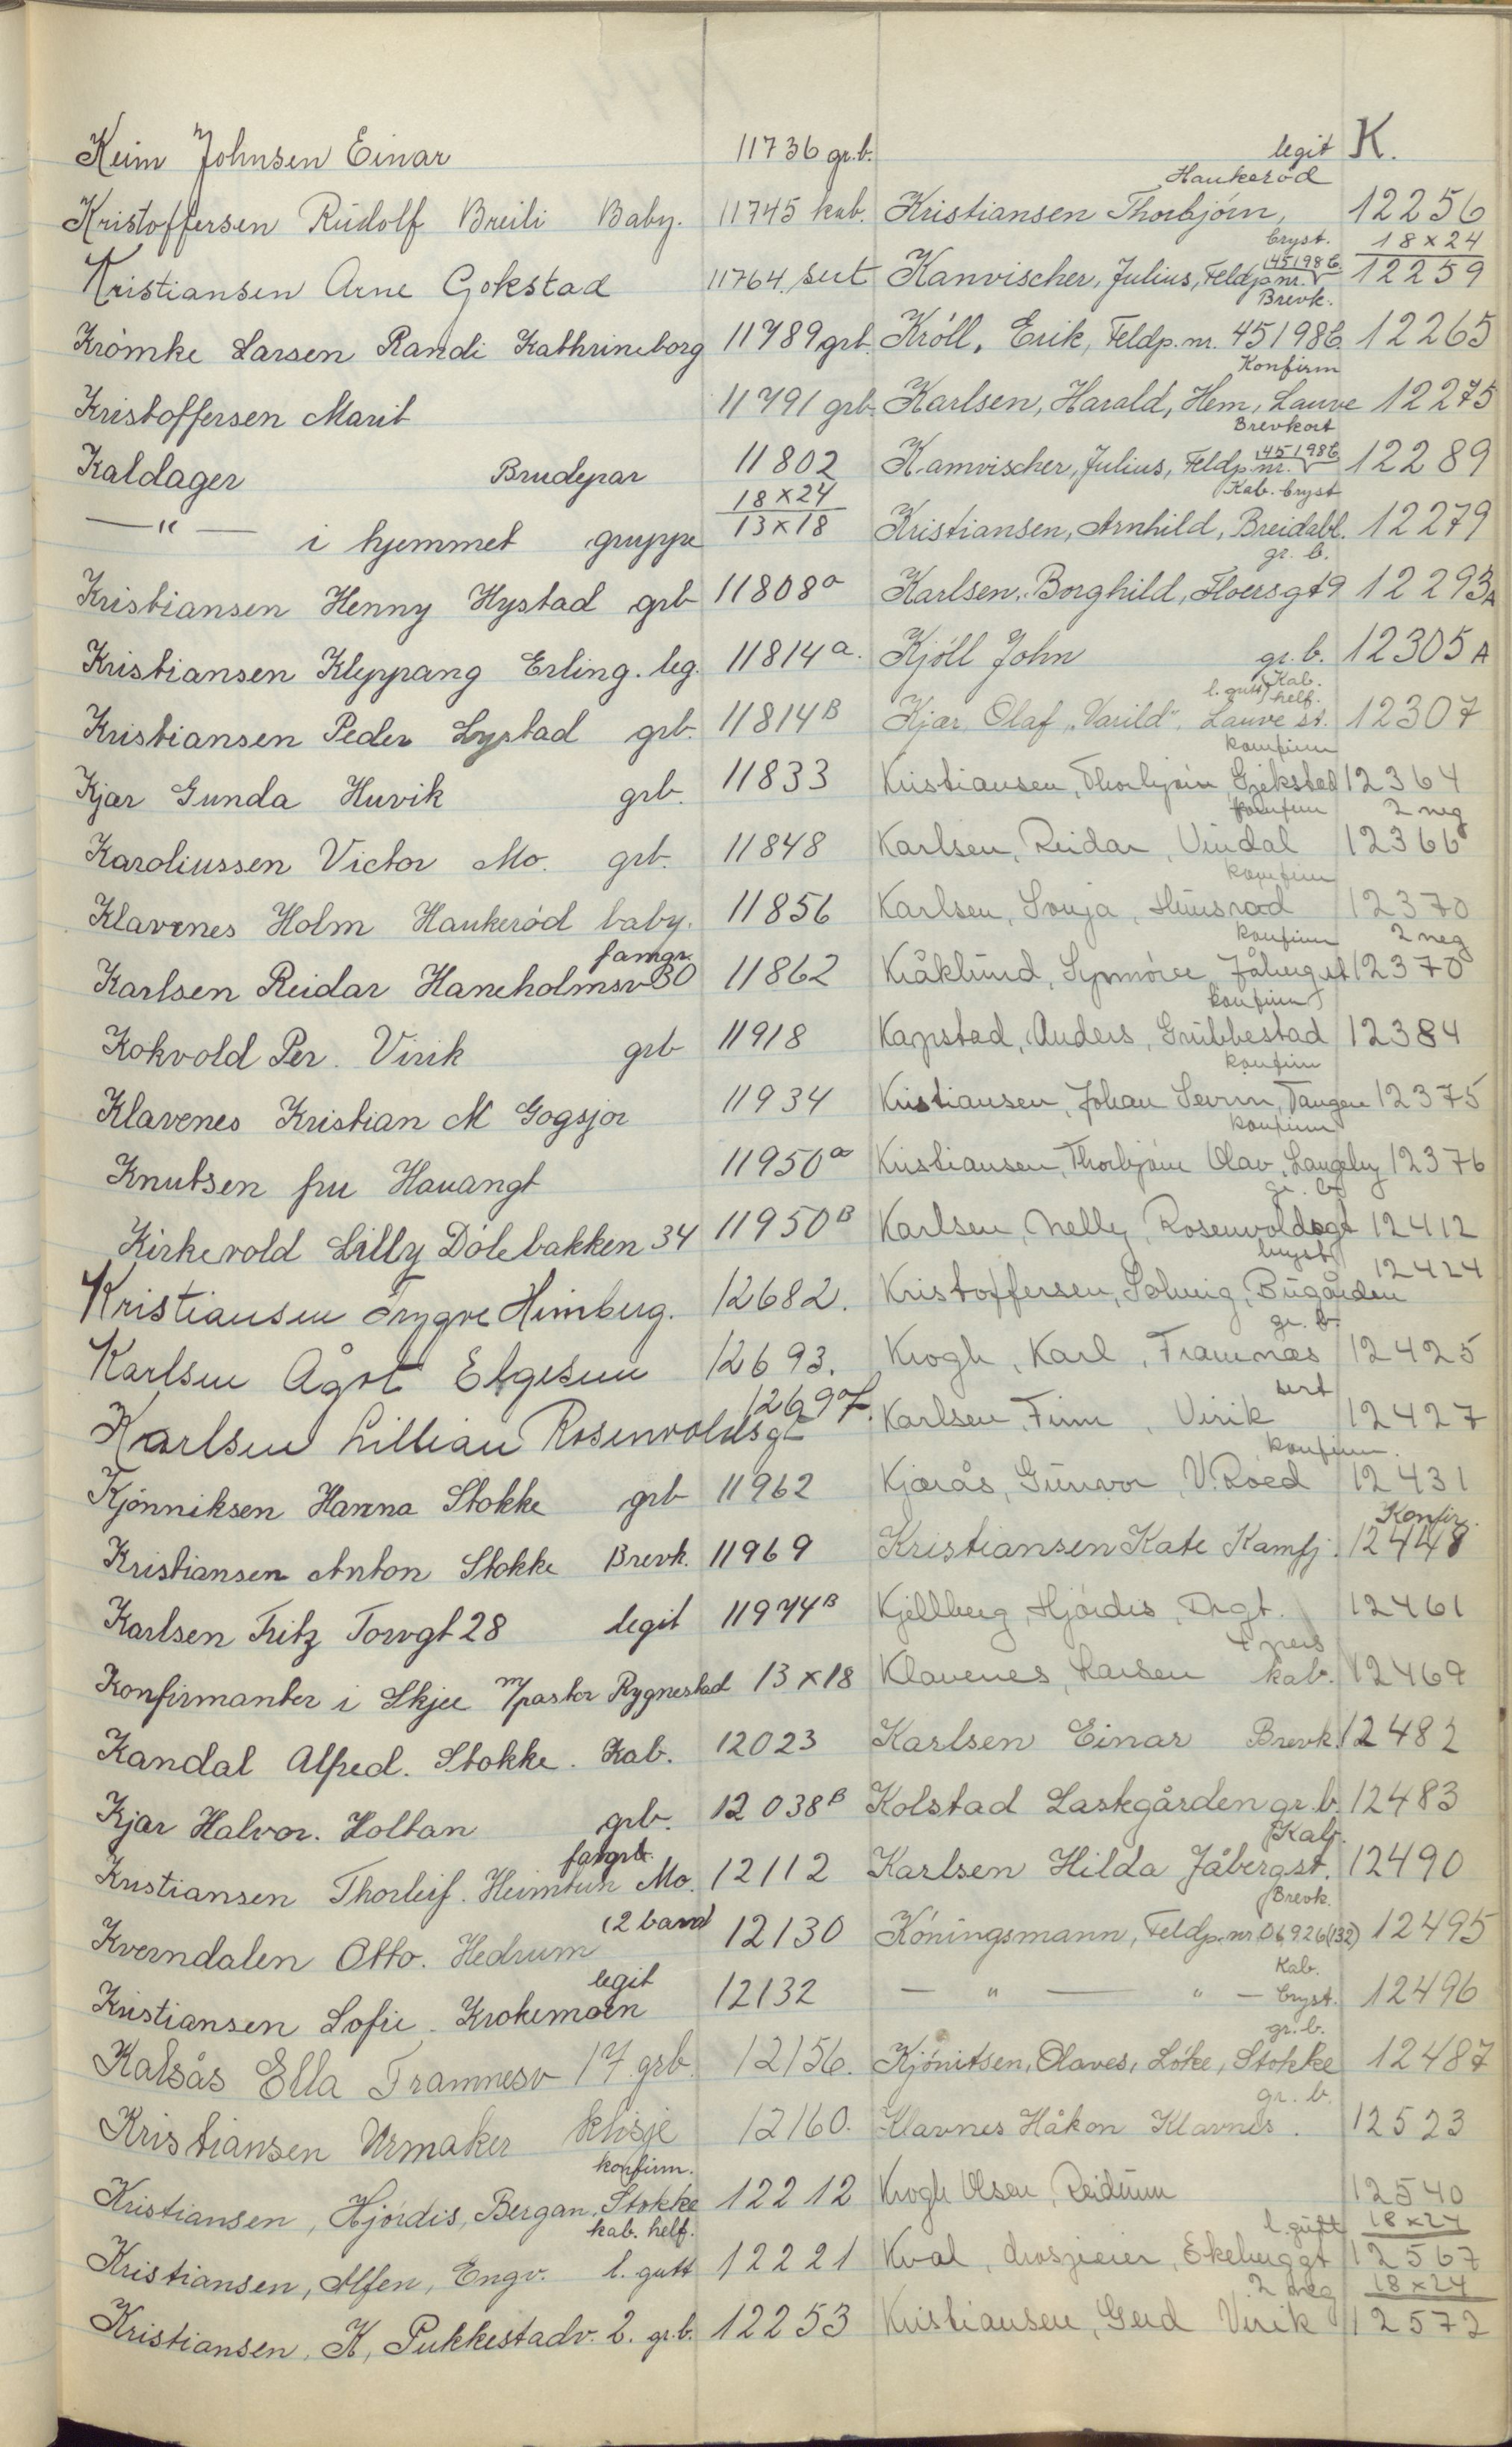 K.
Keim Johnsen Einar 11736 gr.b.
Kristoffersen Rudolf Breili Baby. 11745 kab.
Kristiansen Arne Gokstad 11764 sert
Krómke Larsen Randi Kathrineborg 11789 grb.
Kristoffersen Marit 11791 grb.
Kaldager Brudepar 11802
18x24
—"— i hjemmet gruppe 13x18
Kristiansen Henny Hystad grb 11808a
Kristiansen Kleppang Erling. leg. 11814a.
Kristiansen Peder Lystad grb. 11814B
Kjær Gunda Huvik grb. 11833
Karoliussen Victor Mo. grb. 11848
Klavenes Holm Haukeród baby. 11856
famgr.
Karlsen Reidar Haneholmsv 30 11862
Kokvold Per. Virik grb 11918
Klavenes Kristian M Gogsjor 11934
Knutsen fru Hauangt 11950a
Kirkevold Lilly Dólebakken 34 11950B
Kristiansen Trygve Himberg. 12682.
Karlsen Ågot Elgesem 12693.
Karlsen Lillian Rosenvoldsgt 12697.
Kjónniksen Hanna Stokke grb 11962
Kristiansen Anton Stokke Brevk. 11969
Karlsen Fritz Torvgt 28 legit 11974B
Konfirmanter i Skjee m/pastor Rygnestad 13x18
Kandal Alfred. Stokke. Kab. 12023
Kjær Halvor. Holtan grb. 12038B
Kristiansen Thorleif. Heimtun Mo. 12112
(2 barn)
Kverndalen Otto. Hedrum 12130
legit
Kristiansen Sofie. Krokemoen 12132
Kalsås Ella Framnesv 17 grb. 12156.
Kristiansen Urmaker klisje 12160.
konfirm.
Kristiansen, Hjórdis, Bergan, Stokke 12212
kab. helf.
Kristiansen, Alfen, Engv. l. gutt 12221
Kristiansen, K, Pukkestadv. 2. gr.b. 12253
legit
Haukeród
Kristiansen Thorbjórn, 12256
bryst. 18x24
Kanvischer, Julius, Feldp.nr. 45198B. 12259
Brevk.
Króll, Erik, Feldp.nr. 45198B. 12265
Konfirm
Karlsen, Harald, Hem, Lauve 12275
Brevkort
Kamvischer, Julius, Feldp.nr. 45198B 12289
Kab. bryst
Kristiansen, Arnhild, Breidabl. 12279
gr. b.
Karlsen, Borghild, Floersgt 9 12293A
Kjóll John gr.b. 12305A
l. gutt Kab. helf.
Kjær Olaf "Varild", Lauve st. 12307
konfirm
Kristiansen, Thorbjórn Gjekstad 12364
konfirm 2 neg
Karlsen, Reidar, Vindal 12366
konfirm
Karlsen, Sonja, Hünsrød 12370
konfirm 2 neg
Kråklund, Synnóve Jåberg st 12370
konfirm
Kapstad, Anders, Grubbestad 12384
konfirm
Kristiansen, Johan Severin, Tangen 12375
konfirm
Kristiansen, Thorbjórn Olav, Langeby 12376
gr. b.
Karlsen, Nelly, Rosenvoldsgt 12412
bryst
Kristoffersen, Solveig, Bugården 12424
gr. b.
Krogh, Karl, Framnæs 12425
sert
Karlsen, Finn, Virik 12427
konfirm.
Kjærås, Gunvor, V. Røed 12431
Konfir.
Kristiansen Kate Kamfj. 12448
Kjellberg, Hjórdis, Drgt. 12461
4 pers
Klavenes, Larsen kab. 12469
Karlsen Einar Brevk. 12482
Kolstad Laskgården gr.b. 12483
Kab.
Karlsen Hilda Jåbergst. 12490
Brevk.
Kóningsmann, Feldp.nr 06926(132) 12495
Kab.
— " — " — bryst. 12496
gr. b.
Kjónitsen, Olaves, Lóke, Stokke 12487
gr. b.
Klavnes Håkon Klavnes. 12523
Krogh Olsen, Reidunn 12540
l. gutt 18x24
Kval, drosjeeier, Ekeberggt 12567
2 neg 18x24
Kristiansen, Gerd Virik 12572